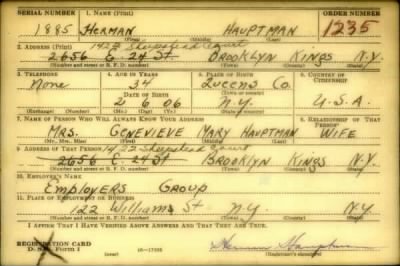 SERIAL NUMBER 1. NAME (Print) ORDER NUMBER
1885 HERMAN HAUPTMAN 1235
(First) (Middle) (Last)
2. ADDRESS (Print) 1422 Sheepshead Court
2656 E. 24 St BROOKLYN KINGS N.Y.
(Number and street or R. F. D. number) (Town) (County) (State)
3. TELEPHONE 4. AGE IN YEARS 5. PLACE OF BIRTH 6. COUNTRY OF CITIZENSHIP
None 34 QUEENS CO.
DATE OF BIRTH (Town or county)
2 6 06 N.Y. U.S.A.
(Exchange) (Number) (Mo.) (Day) (Yr.) (State or country)
7. NAME OF PERSON WHO WILL ALWAYS KNOW YOUR ADDRESS 8. RELATIONSHIP OF THAT PERSON
MRS. GENEVIEVE MARY HAUPTMAN WIFE
(Mr., Mrs., Miss) (First) (Middle) (Last)
9. ADDRESS OF THAT PERSON 1422 Sheepshead Court
2656 E. 24 St BROOKLYN KINGS N.Y.
(Number and street or R. F. D. number) (Town) (County) (State)
10. EMPLOYER'S NAME
EMPLOYERS GROUP
11. PLACE OF EMPLOYMENT OR BUSINESS
122 Williams St N.Y. N.Y.
(Number and street or R. F. D. number) (Town) (County) (State)
I AFFIRM THAT I HAVE VERIFIED ABOVE ANSWERS AND THAT THEY ARE TRUE.
REGISTRATION CARD
D. S. S. Form 1 16—17105 Herman Hauptman
(Registrant's signature)